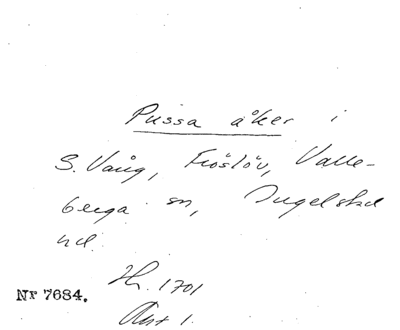 Pussa åker i
S. Vång, Fröslöv, Valle-
berga sn, Ingelstad
hd.
Hr. 1701
Nr 7684.
Akt 1.